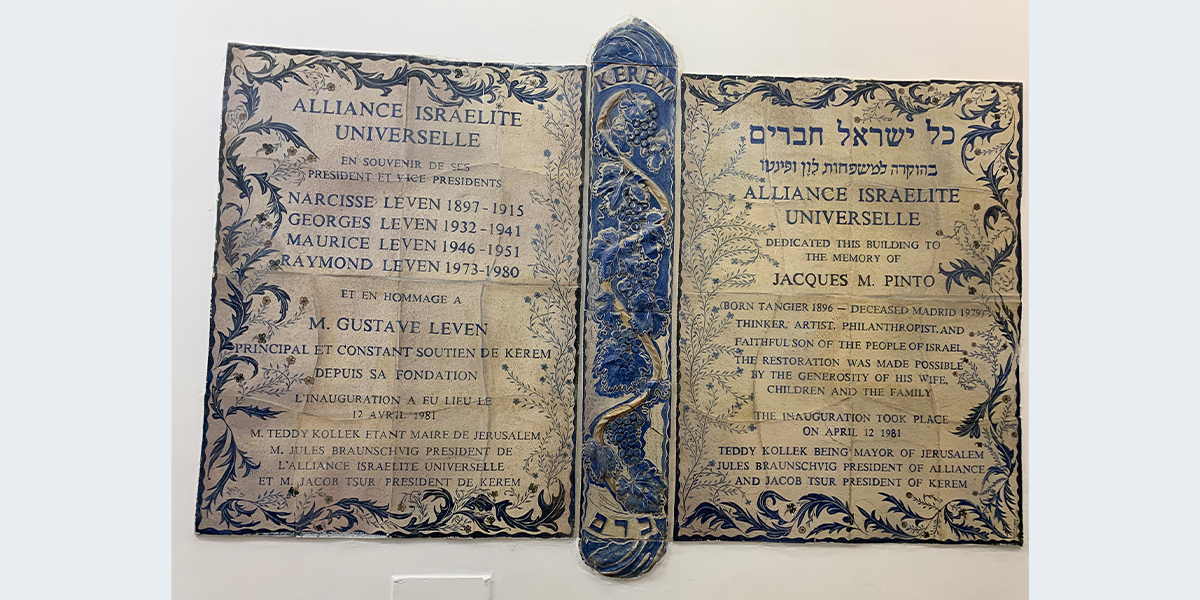 ALLIANCE ISRAELITE
UNIVERSELLE
EN SOUVENIR DE SES
PRESIDENT ET VICE PRESIDENTS
NARCISSE LEVEN 1897-1915
GEORGES LEVEN 1932-1941
MAURICE LEVEN 1946-1951
RAYMOND LEVEN 1973-1980
ET EN HOMMAGE A
M. GUSTAVE LEVEN
PRINCIPAL ET CONSTANT SOUTIEN DE KEREM
DEPUIS SA FONDATION
L'INAUGURATION A EU LIEU LE
12 AVRIL 1981
M. TEDDY KOLLEK ETANT MAIRE DE JERUSALEM,
M. JULES BRAUNSCHVIG PRESIDENT DE
L'ALLIANCE ISRAELITE UNIVERSELLE
ET M. JACOB TSUR PRESIDENT DE KEREM
KEREM
כרם
כל ישראל חברים
בהוקרה למשפחות לון ופינטו
ALLIANCE ISRAELITE
UNIVERSELLE
DEDICATED THIS BUILDING TO
THE MEMORY OF
JACQUES M. PINTO
(BORN TANGIER 1896 — DECEASED MADRID 1979)
THINKER, ARTIST, PHILANTHROPIST, AND
FAITHFUL SON OF THE PEOPLE OF ISRAEL
THE RESTORATION WAS MADE POSSIBLE
BY THE GENEROSITY OF HIS WIFE,
CHILDREN AND THE FAMILY
THE INAUGURATION TOOK PLACE
ON APRIL 12 1981
TEDDY KOLLEK BEING MAYOR OF JERUSALEM
JULES BRAUNSCHVIG PRESIDENT OF ALLIANCE
AND JACOB TSUR PRESIDENT OF KEREM